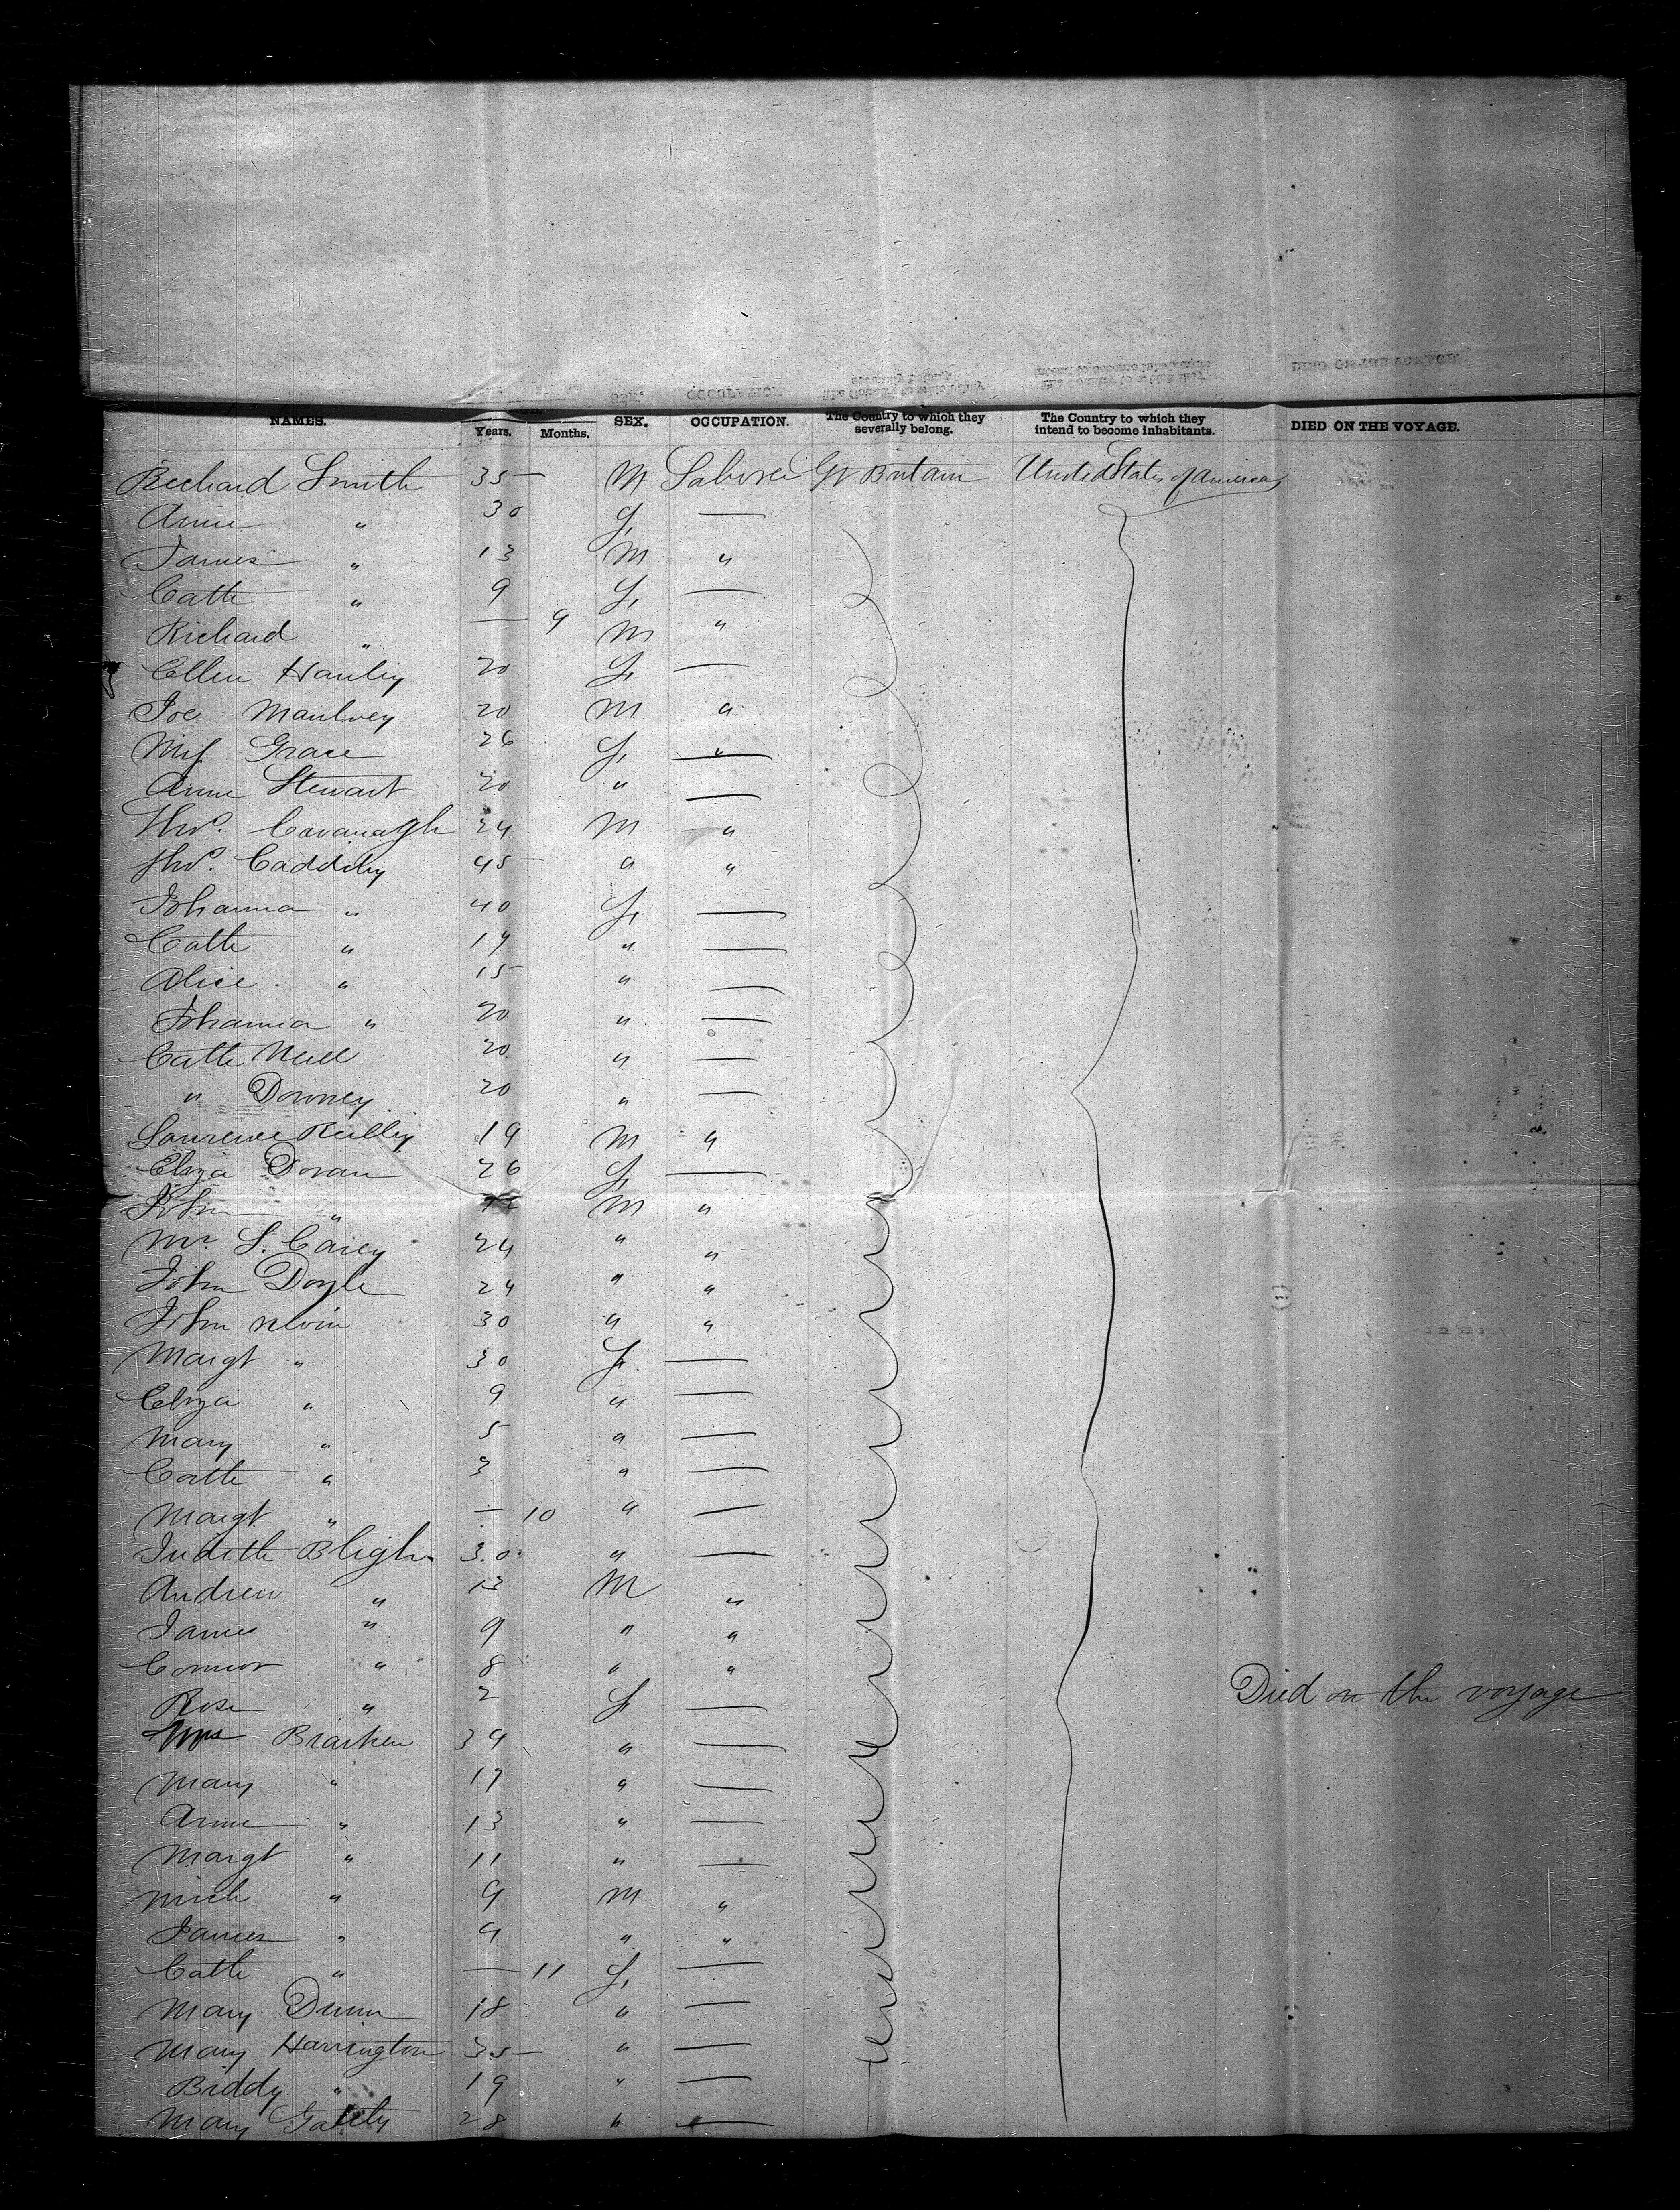 NAMES. Years. Months. SEX. OCCUPATION. The Country to which they severally belong. The Country to which they intend to become inhabitants. DIED ON THE VOYAGE.
Richard Smith 35 M Laborer Gt Britain United States of America
Anne " 30 F —
James " 13 M "
Cath " 9 F —
Richard " — 9 M "
Ellen Hanley 20 F —
Joe Manlvey 20 M "
Grace 26 F —
Anne Stewart 20 " —
Thos. Cavanagh 24 M "
Thos. Caddihy 45 " "
Johanna " 40 F —
Cath " 17 " —
Alice " 15 " —
Johanna " 20 " —
Cath Neill 20 " —
" Downey 20 " —
Lawrence Reilly 19 M "
Eliza Doran 26 F —
John " M "
Mr. L. Carey 24 " "
John Doyle 24 " "
John Nevin 30 " "
Margt " 30 F —
Eliza " 9 " —
Mary " 5 " —
Cath " 3 " —
Margt " — 10 " —
Judith Bligh 30 " —
Andrew " 13 M "
James " 9 " "
Connor " 8 " "
Rose " 2 F — Died on the voyage
Mrs Bracken 39 " —
Mary " 17 " —
Anne " 13 " —
Margt " 11 " —
Mich " 9 M "
James " 9 " "
Cath " — 11 F —
Mary Dunn 18 " —
Mary Harrington 35 " —
Biddy " 19 " —
Mary 28 " —